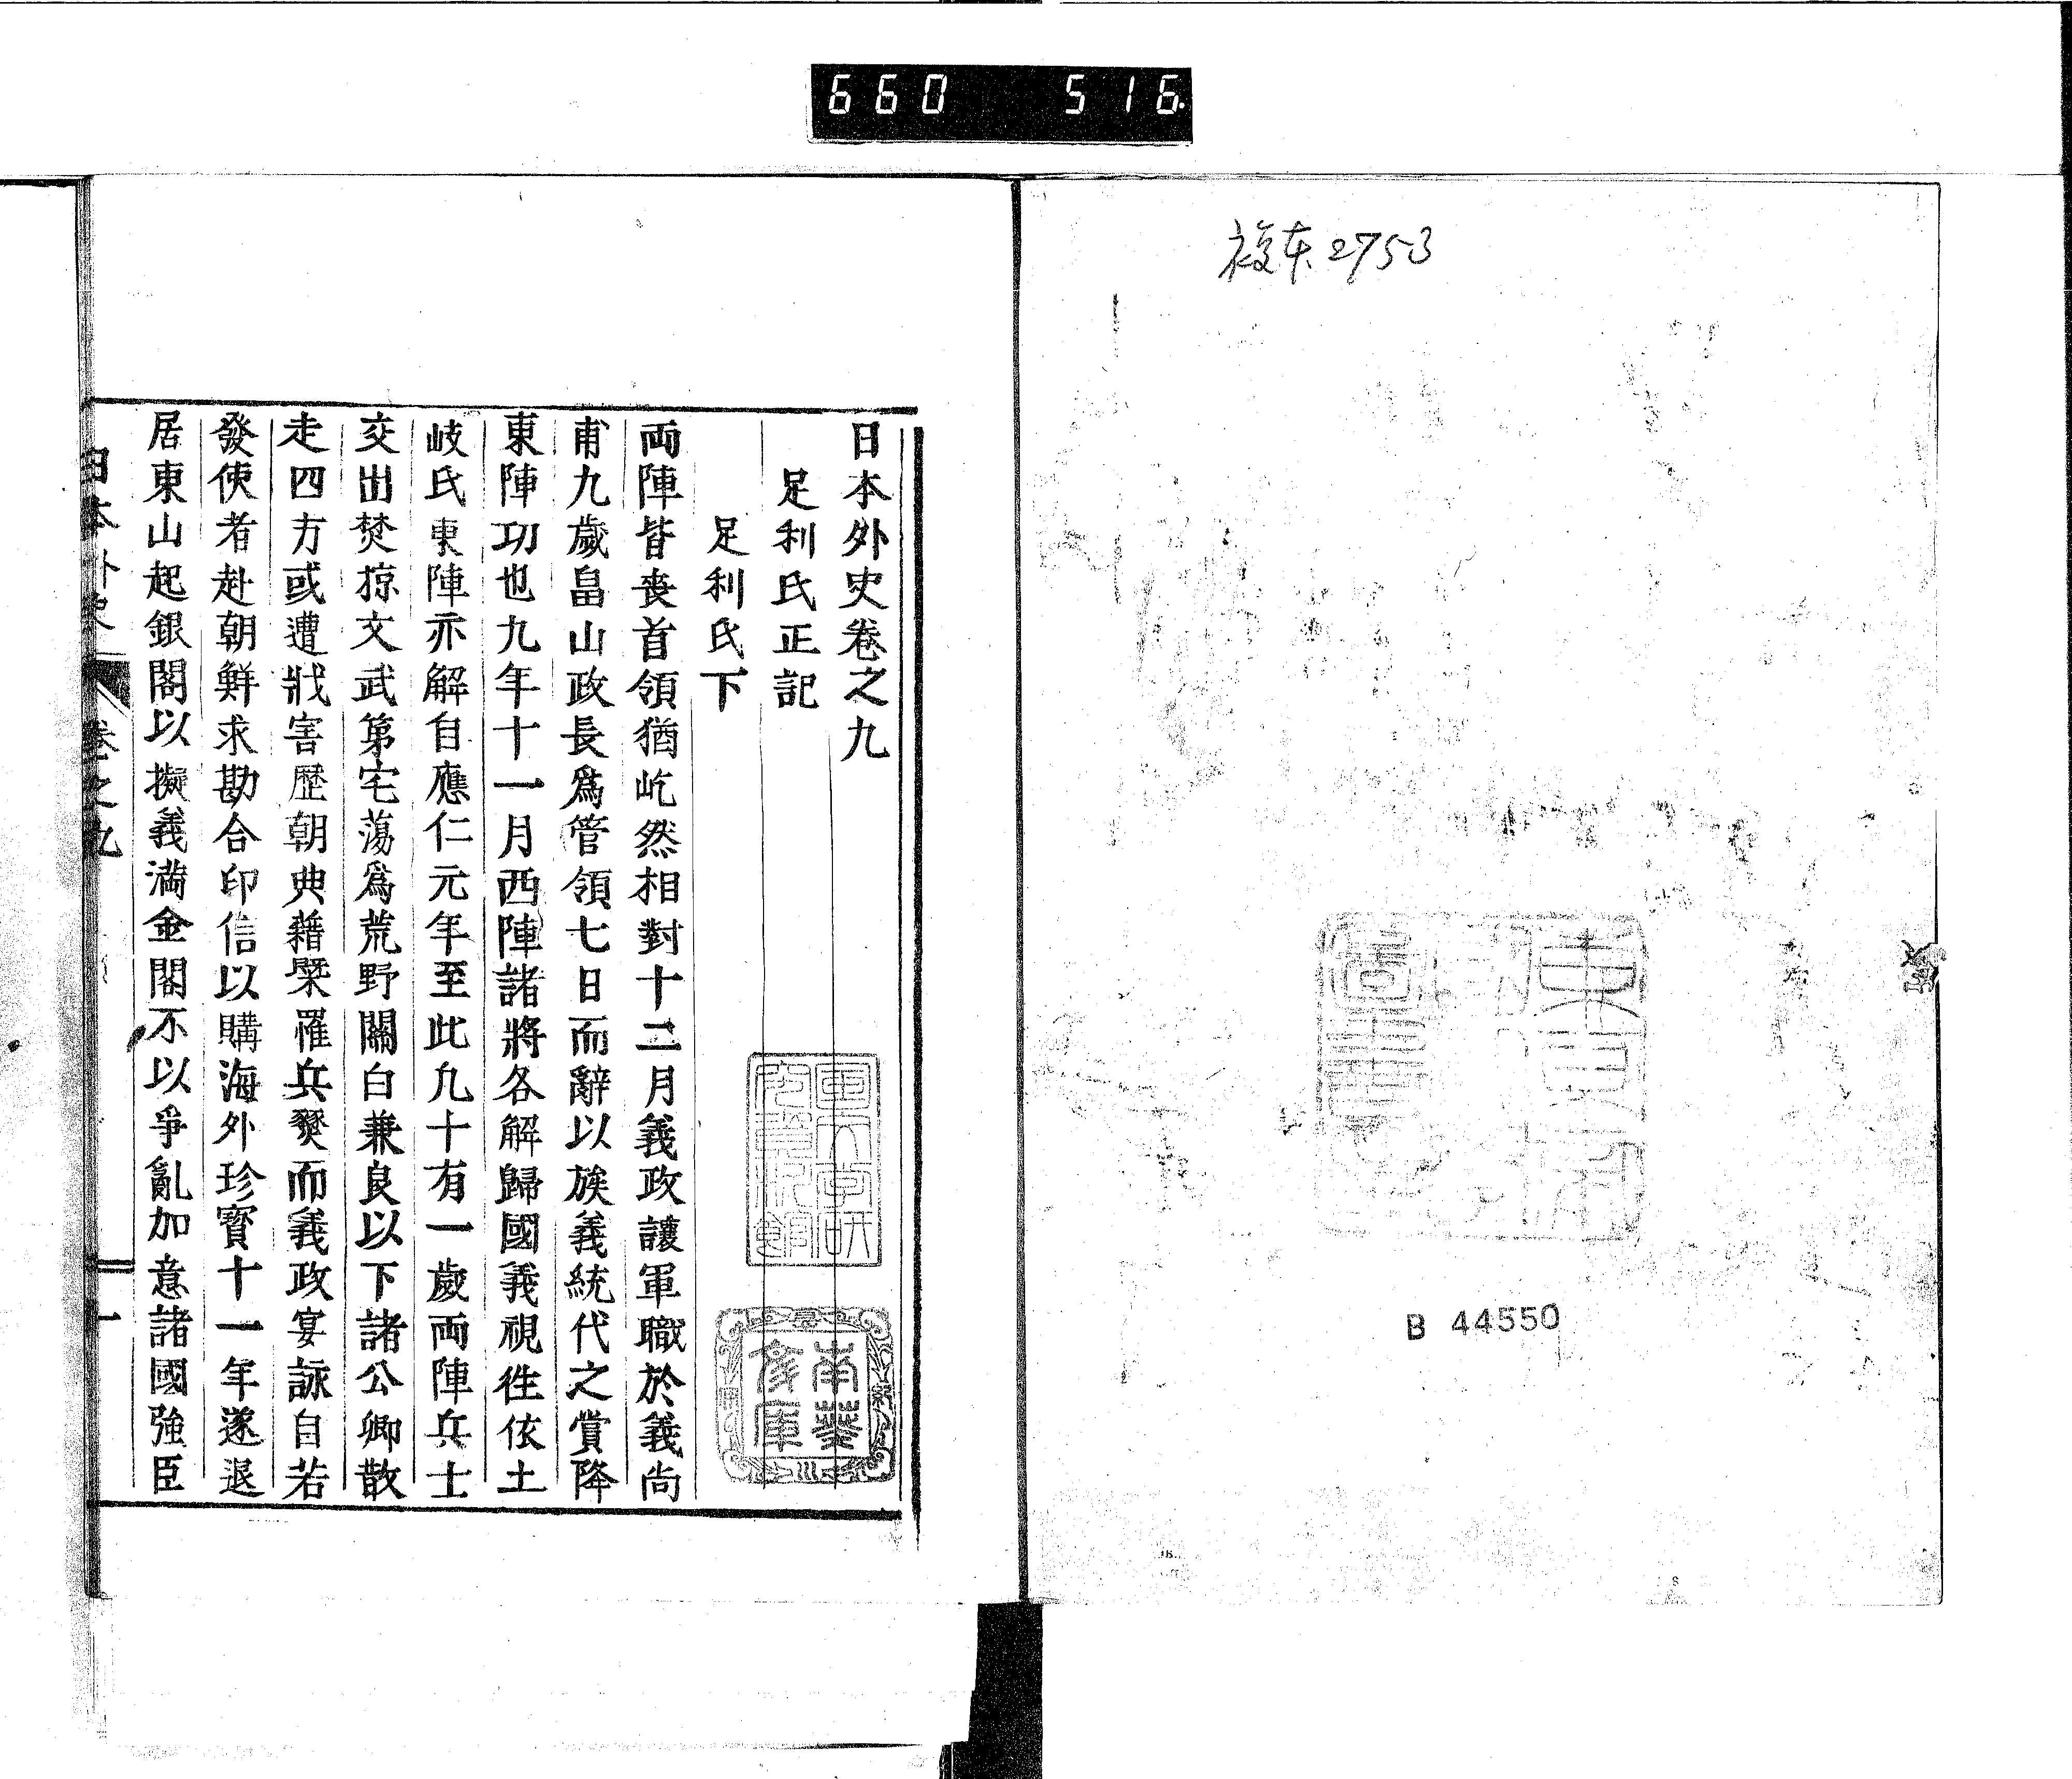 660 516.
複本2753
B 44550
日本外史卷之九
足利氏正記
足利氏下
両陣皆喪首領猶屹然相對十二月義政讓軍職於義尚
甫九歲畠山政長爲管領七日而辭以族義統代之賞降
東陣功也九年十一月西陣諸將各解歸國義視往依土
岐氏東陣亦解自應仁元年至此凡十有一歲両陣兵士
交出焚掠文武第宅蕩爲荒野關白兼良以下諸公卿散
走四方或遭戕害歷朝典藉槩罹兵燹而義政宴詠自若
發使者赴朝鮮求勘合印信以購海外珍寶十一年遂退
居東山起銀閣以擬義滿金閣不以爭亂加意諸國強臣
日本外史
卷之九
一
南葵
文庫